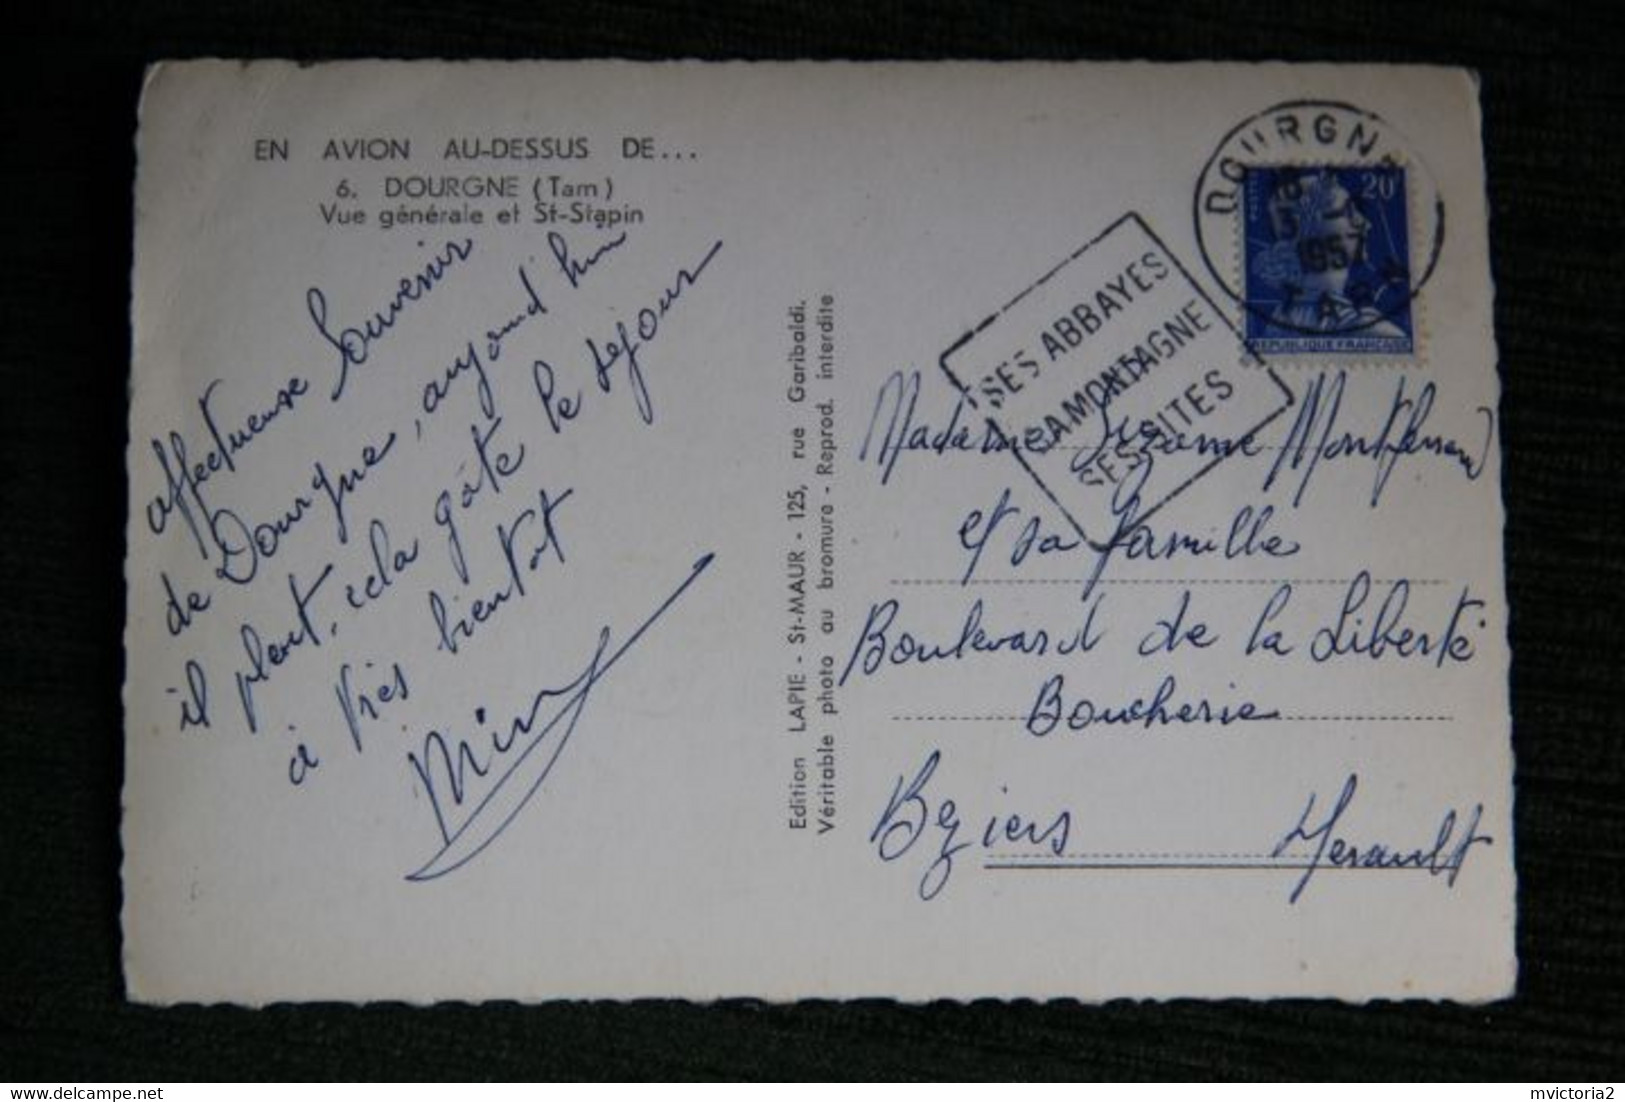 EN AVION AU-DESSUS DE...
6. DOURGNE (Tarn)
Vue générale et St-Stapin
affectueuse Souvenir
de Dourgne, aujourd'hui
il pleut, cela gâte le séjour
à très bientôt
Edition LAPIE - St-MAUR - 125, rue Garibaldi.
Véritable photo au bromure - Reprod. interdite
SES ABBAYES
SA MONTAGNE
SES SITES
DOURGNE
18
1957
TARN
20
REPUBLIQUE FRANÇAISE
Madame Suzanne Montferrand
et sa famille
Boulevard de la Liberté
Boucherie
Beziers Herault
mvictoria2